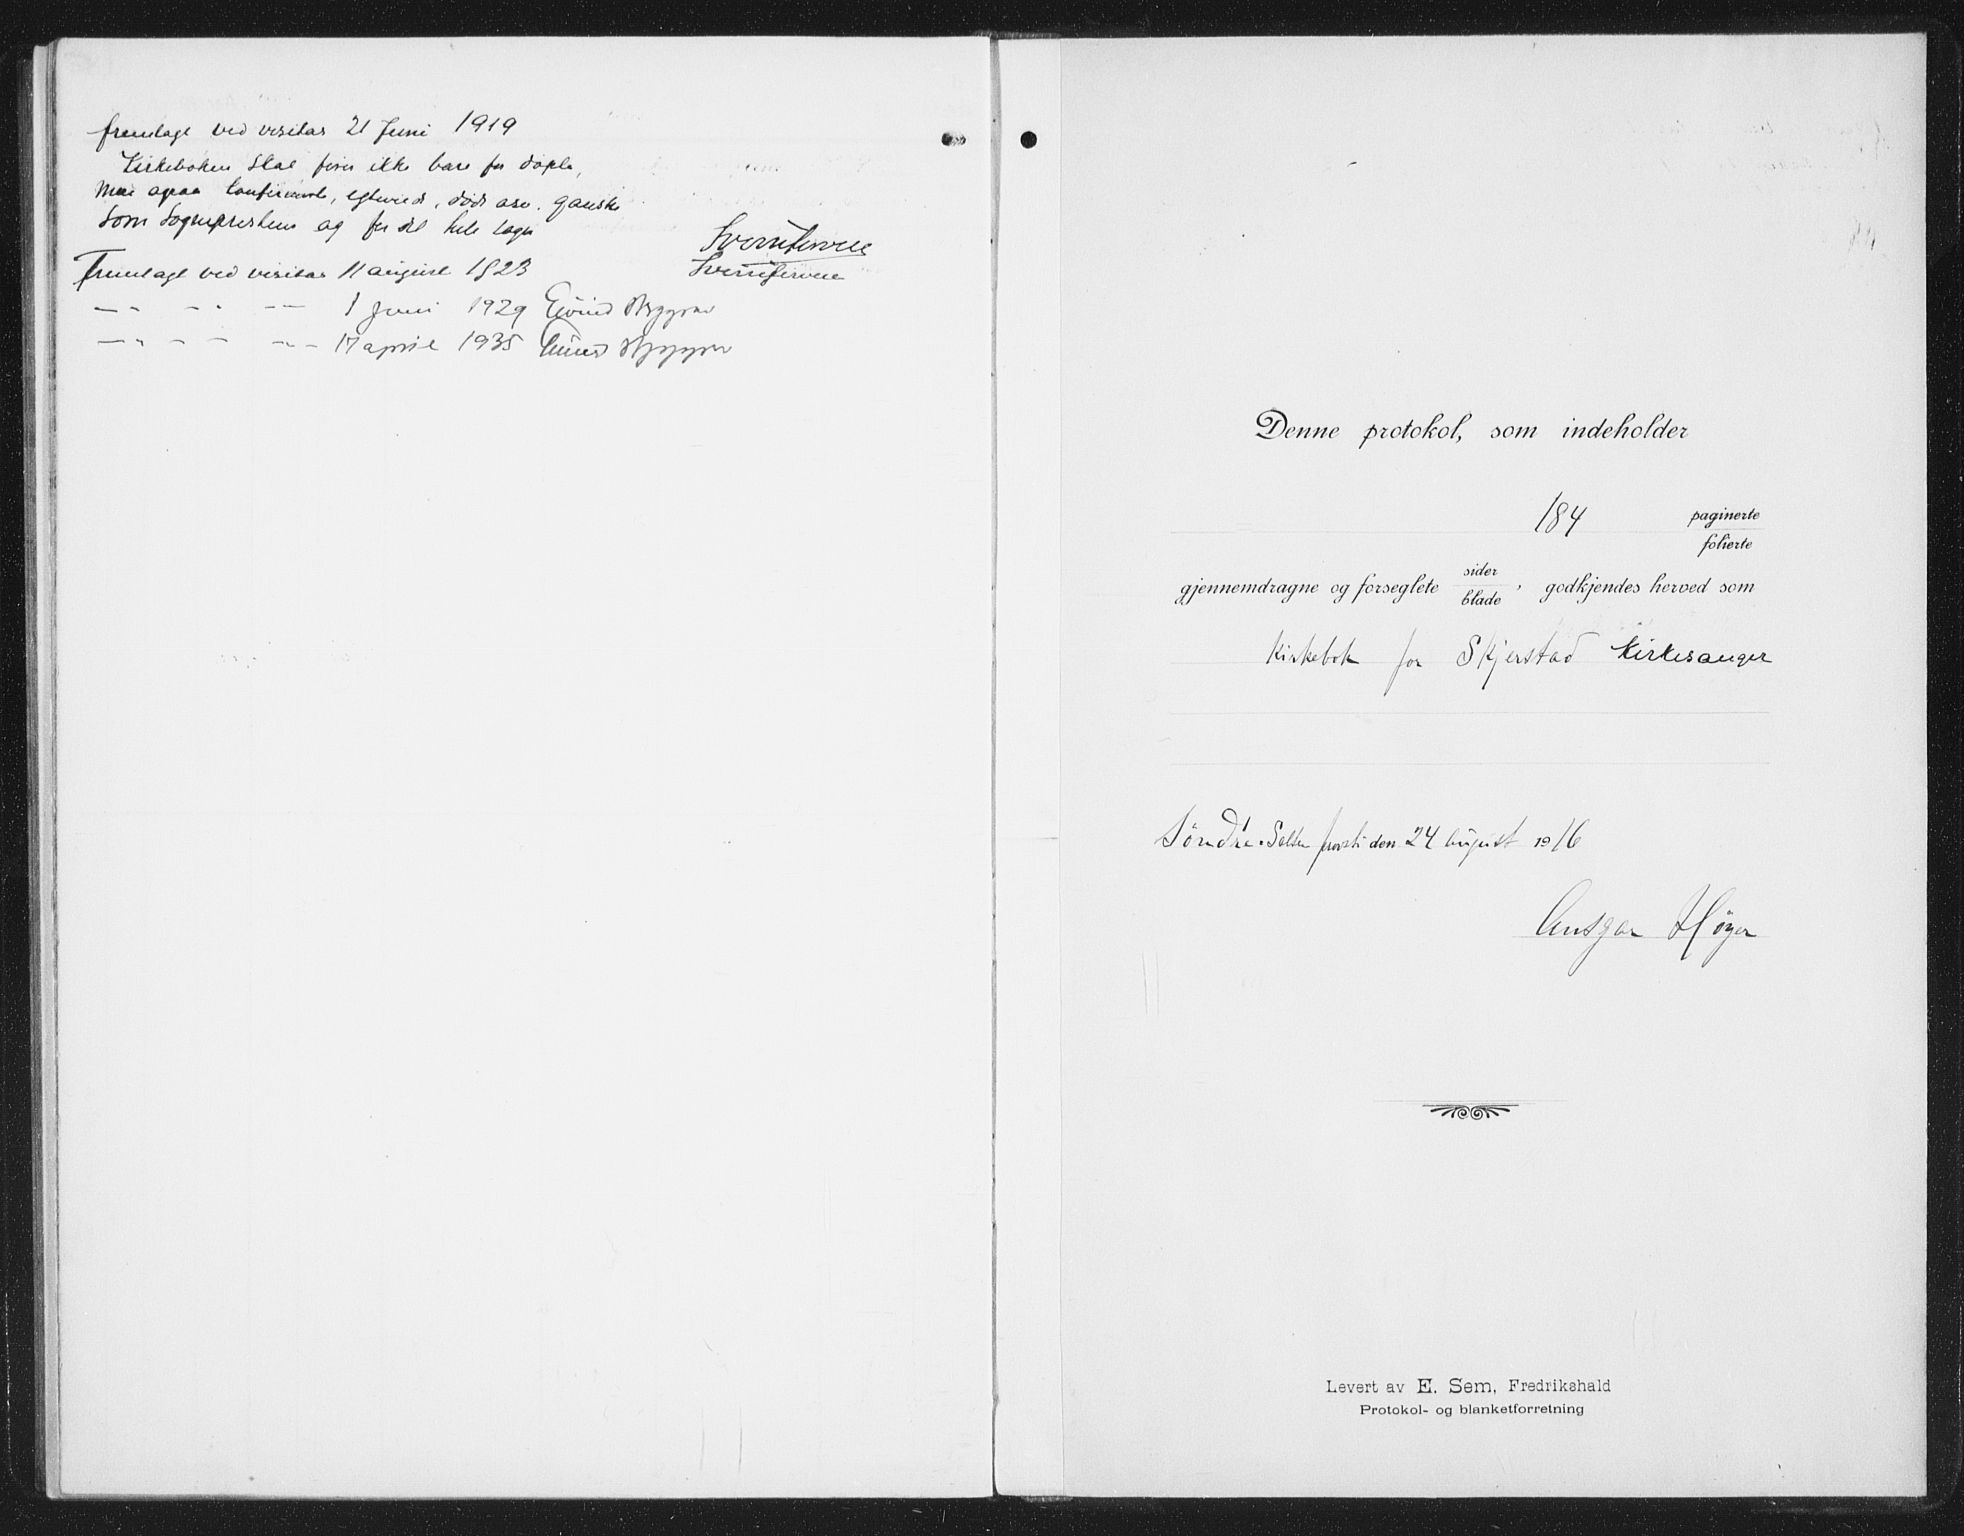 fremlagt ved visitas 21 Juni 1919
Kirkeboken skal føres ikke bare for døpte,
men ogsaa konfirmerte, egteviede, døde osv. ganske
som Sogneprestens og for det hele sogn
Fremlagt ved visitas 11 august 1923
— „ — „ — 1 Juni 1929 Eivind Berggrav
— „ — „ — 17 april 1935 Eivind Berggrav
Denne protokol, som indeholder
184 paginerte
folierte
gjennemdragne og forseglete sider
blade, godkjendes herved som
Kirkebok for Skjerstad Kirkesanger
Søndre Salten provsti den 24 august 1916
Ansgar Høyer
Levert av E. Sem, Fredrikshald
Protokol- og blanketforretning